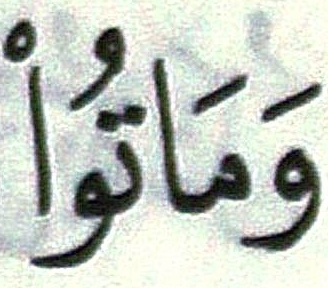 وَمَاتُواْ